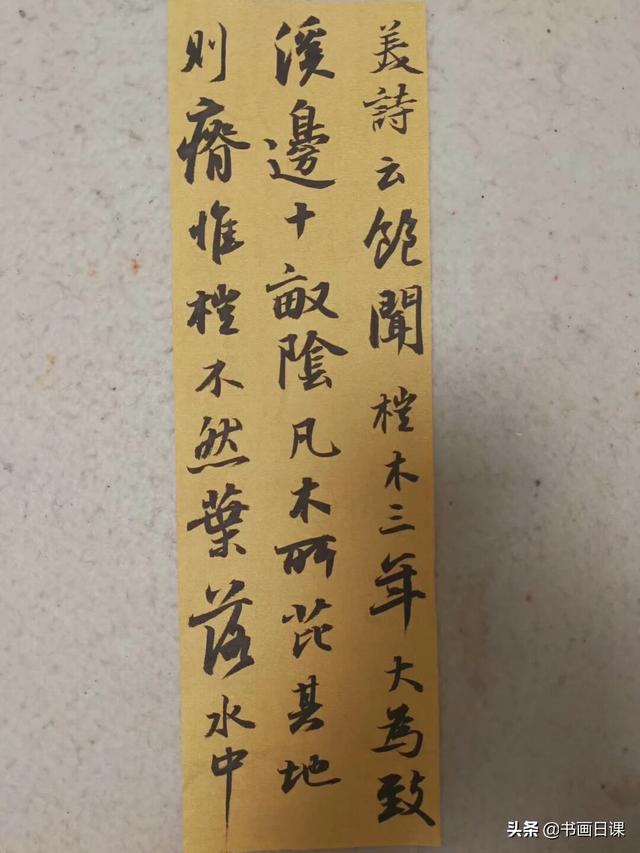 義詩云飽聞榿木三年大為致
溪邊十畝陰凡木所芘其地
則瘠惟榿不然葉落水中
头条 @书画日课